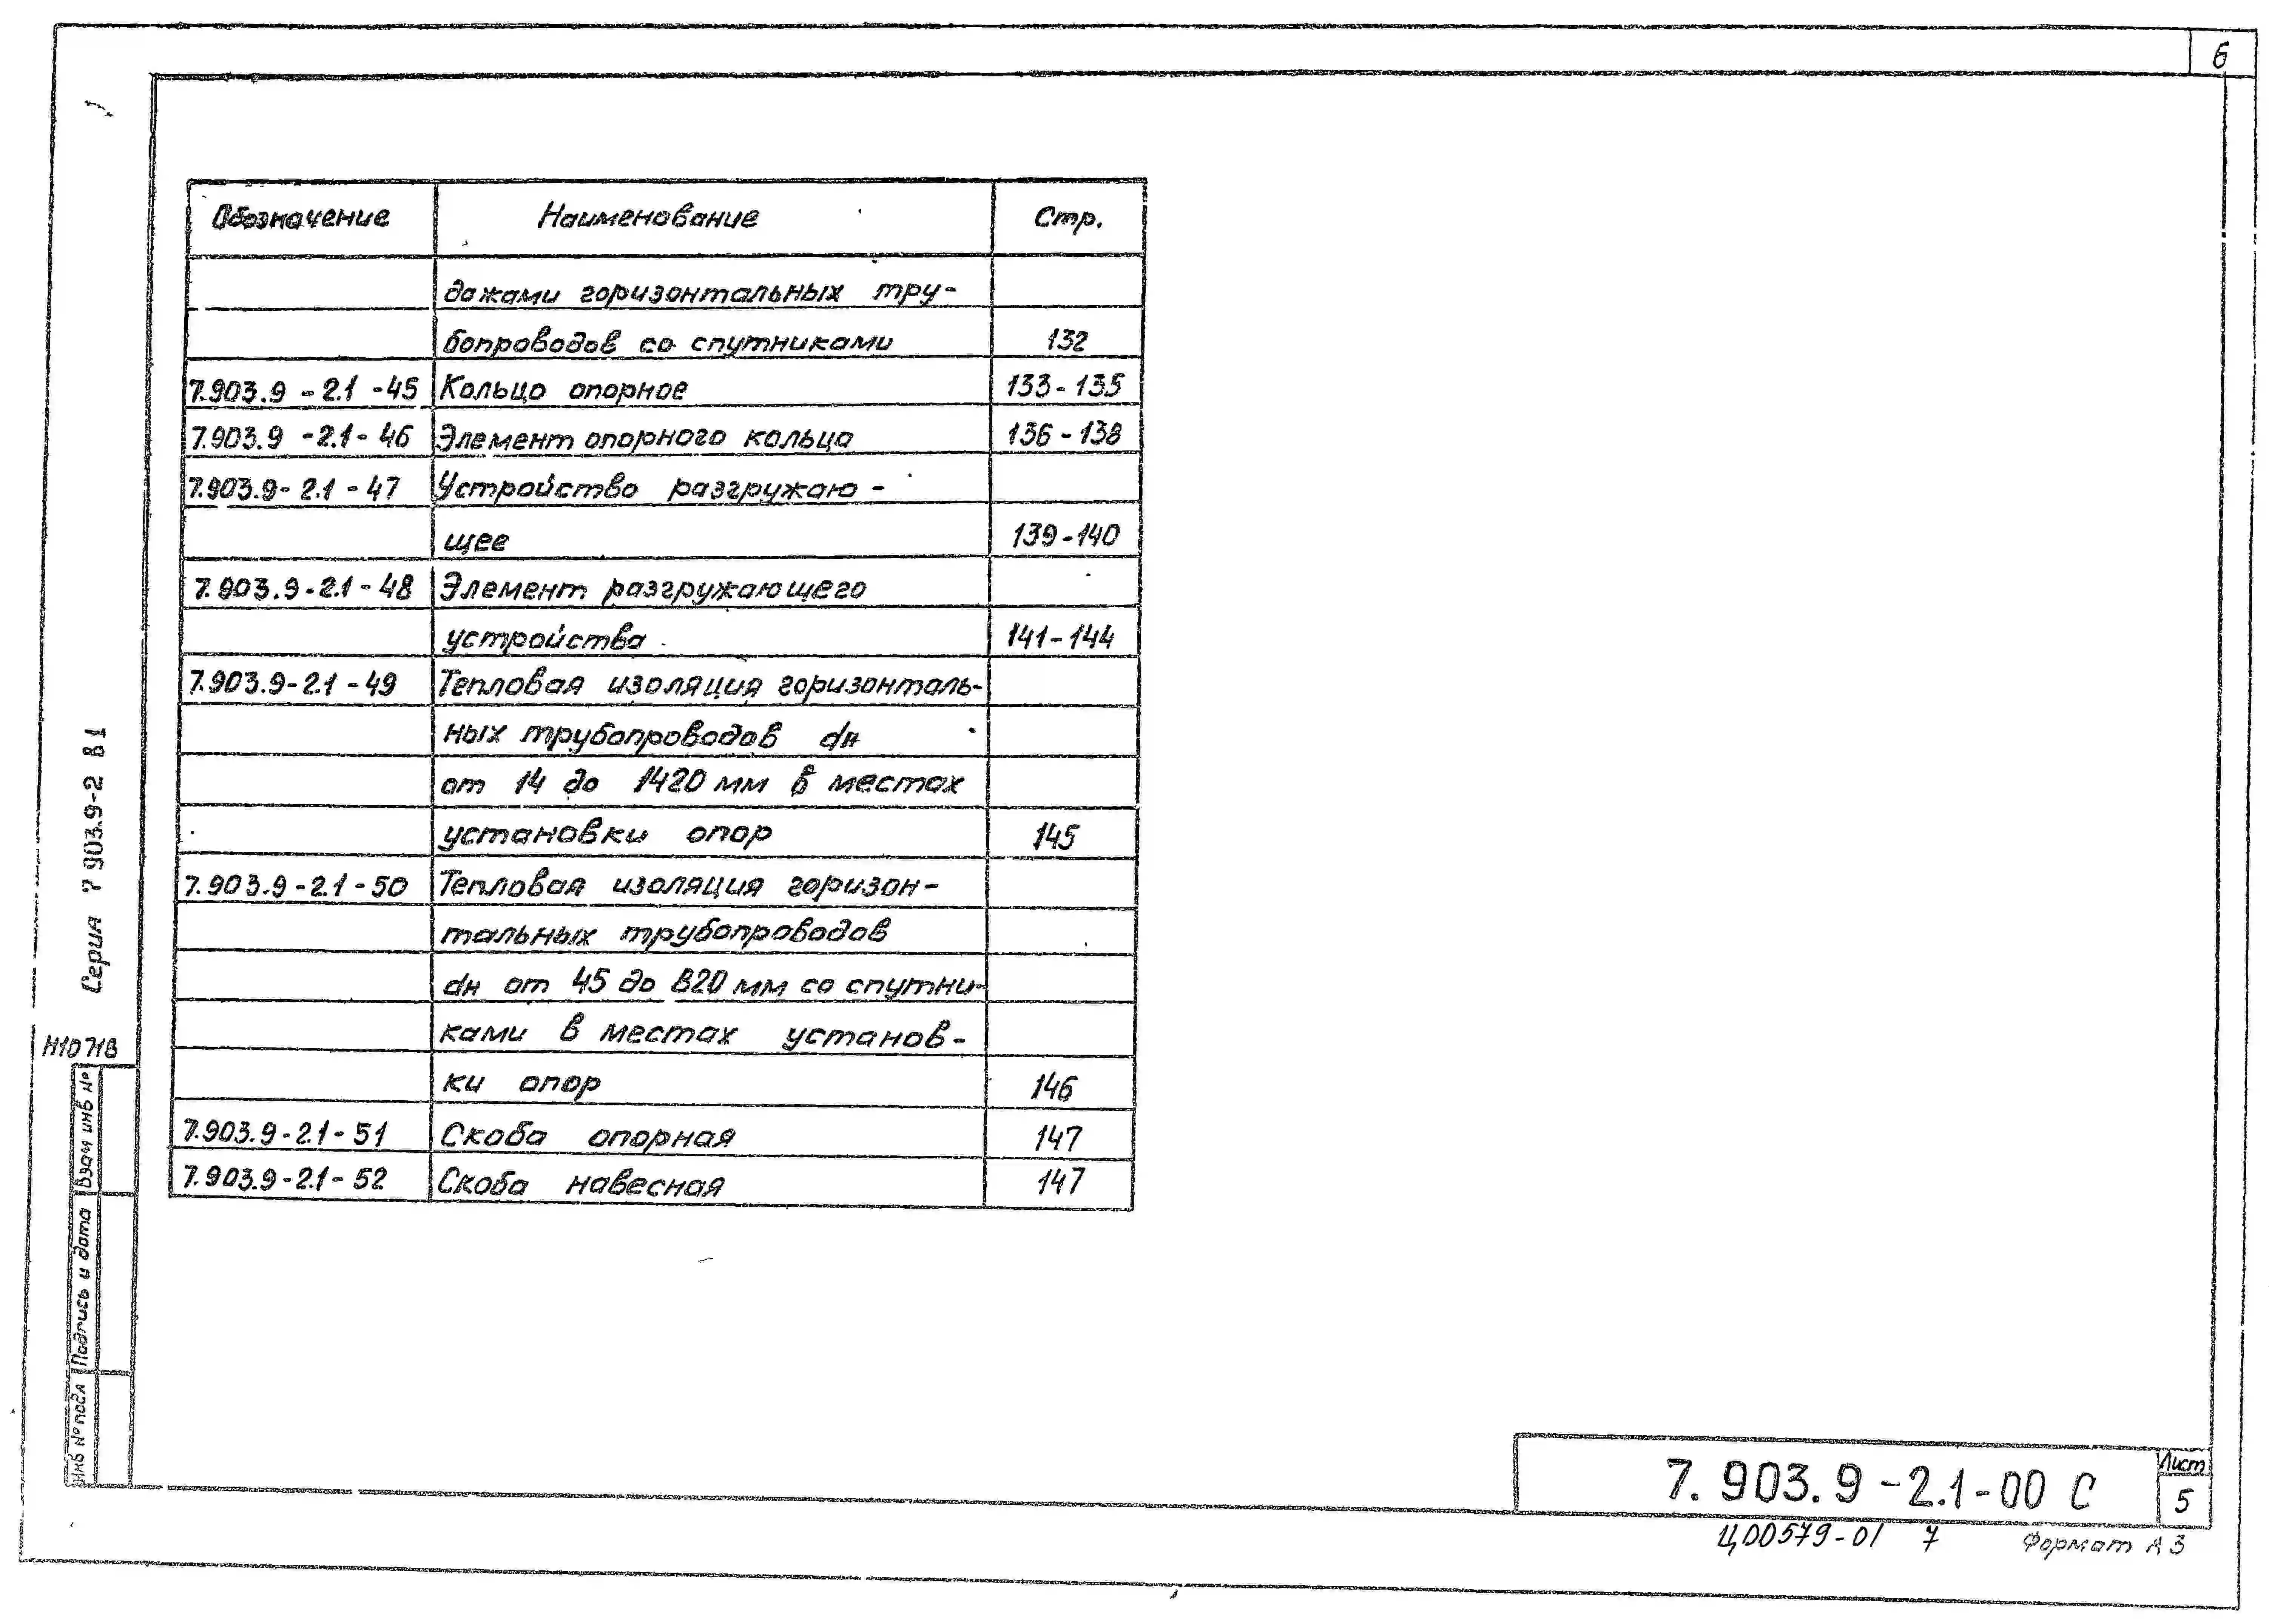 6
Обозначение Наименование Стр.
дожами горизонтальных тру-
бопроводов со спутниками 132
7.903.9-2.1-45 Кольцо опорное 133-135
7.903.9-2.1-46 Элемент опорного кольца 136-138
7.903.9-2.1-47 Устройство разгружаю-
щее 139-140
7.903.9-2.1-48 Элемент разгружающего
устройства 141-144
7.903.9-2.1-49 Тепловая изоляция горизонталь-
ных трубопроводов dн
от 14 до 1420 мм в местах
установки опор 145
7.903.9-2.1-50 Тепловая изоляция горизон-
тальных трубопроводов
dн от 45 до 820 мм со спутни-
ками в местах установ-
ки опор 146
7.903.9-2.1-51 Скоба опорная 147
7.903.9-2.1-52 Скоба навесная 147
Серия 7 903.9-2 В1
Взам инв №
Подпись и дата
Инв № подл
7.903.9-2.1-00 С
Лист
5
Ц00579-01 7 Формат А3